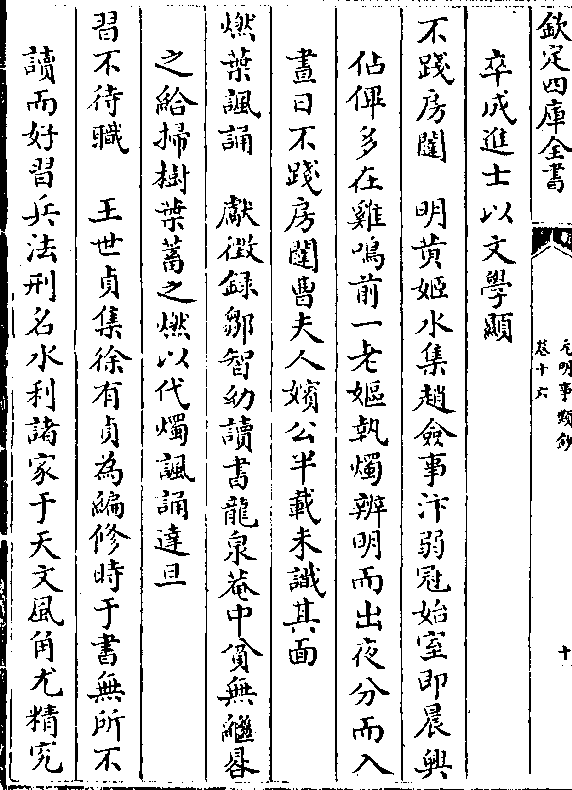 欽定四庫全書
元明事類鈔
卷十六
十
卒成進士以文學顯
不踐房闥　明黄姬水集趙僉事汴弱冠始室即晨興
佔俾多在雞鳴前一老嫗執燭辨明而出夜分而入
晝日不踐房闥曹夫人嬪公半載未識其面
燃葉諷誦　獻徵録鄒智幼讀書龍泉菴中貧無繼晷
之給掃樹葉蓄之燃以代燭諷誦達旦
習不待職　王世貞集徐有貞為編修時于書無所不
讀而好習兵法刑名水利諸家于天文風角尤精究